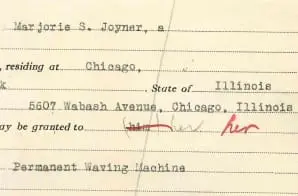 Marjorie S. Joyner, a
, residing at Chicago,
k , State of Illinois
5607 Wabash Avenue, Chicago, Illinois
ay be granted to him her her
Permanent Waving Machine